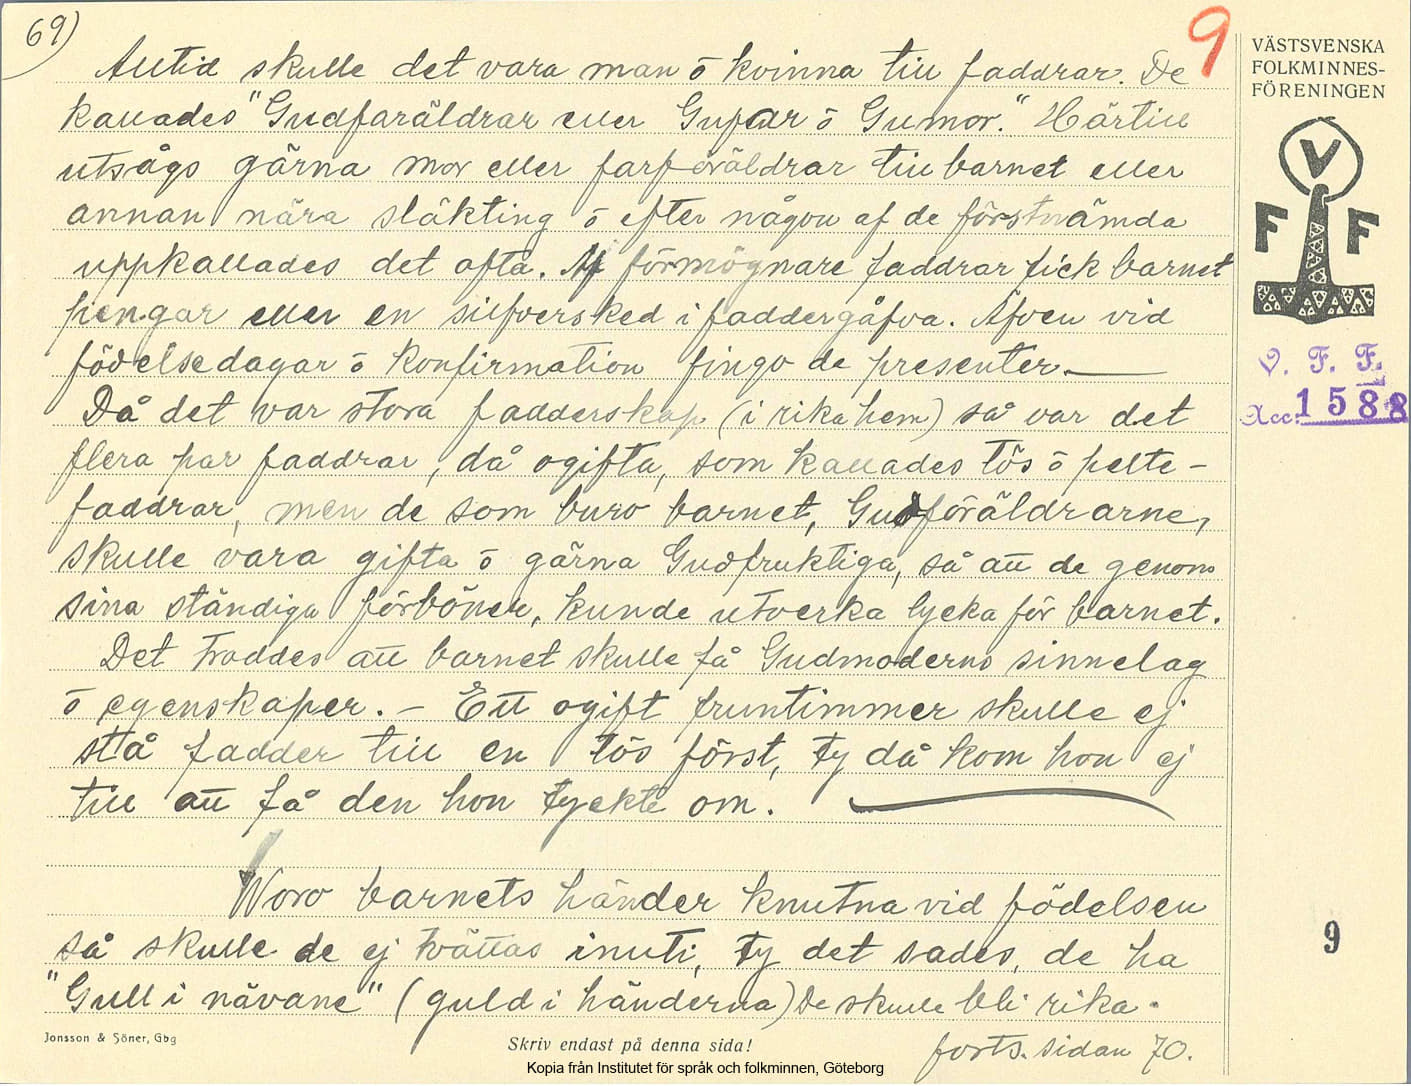 69)
9
Alltid skulle det vara man ō kvinna till faddrar. De
kallades "Gudfaräldrar eller Gufar ō Gumor." Härtill
utsågs gärna mor eller farföräldrar till barnet eller
annan nära släkting ō efter någon af de förstnämda
uppkallades det ofta. Af förmögnare faddrar fick barnet
pengar eller en silfversked i faddergåfva. Äfven vid
födelsedagar ō konfirmation fingo de presenter.—
Då det var stora fadderskap (i rika hem) så var det
flera par faddrar, då ogifta, som kallades tös ō pelte-
faddrar, men de som buro barnet, Gudföräldrarne,
skulle vara gifta ō gärna Gudfruktiga, så att de genom
sina ständiga förböner, kunde utverka lycka för barnet.
Det troddes att barnet skulle få Gudmoderns sinnelag
ō egenskaper. – Ett ogift fruntimmer skulle ej
stå fadder till en tös först, ty då kom hon ej
till att få den hon tyckte om.
Woro barnets händer knutna vid födelsen
så skulle de ej tvättas inuti, ty det sades, de ha
"Gull i nävane" (guld i händerna) De skulle bli rika.
forts. sidan 70.
VÄSTSVENSKA
FOLKMINNES-
FÖRENINGEN
V
F F
V. F. F.
Acc. 1588
9
Jonsson & Söner, Gbg
Skriv endast på denna sida!
Kopia från Institutet för språk och folkminnen, Göteborg